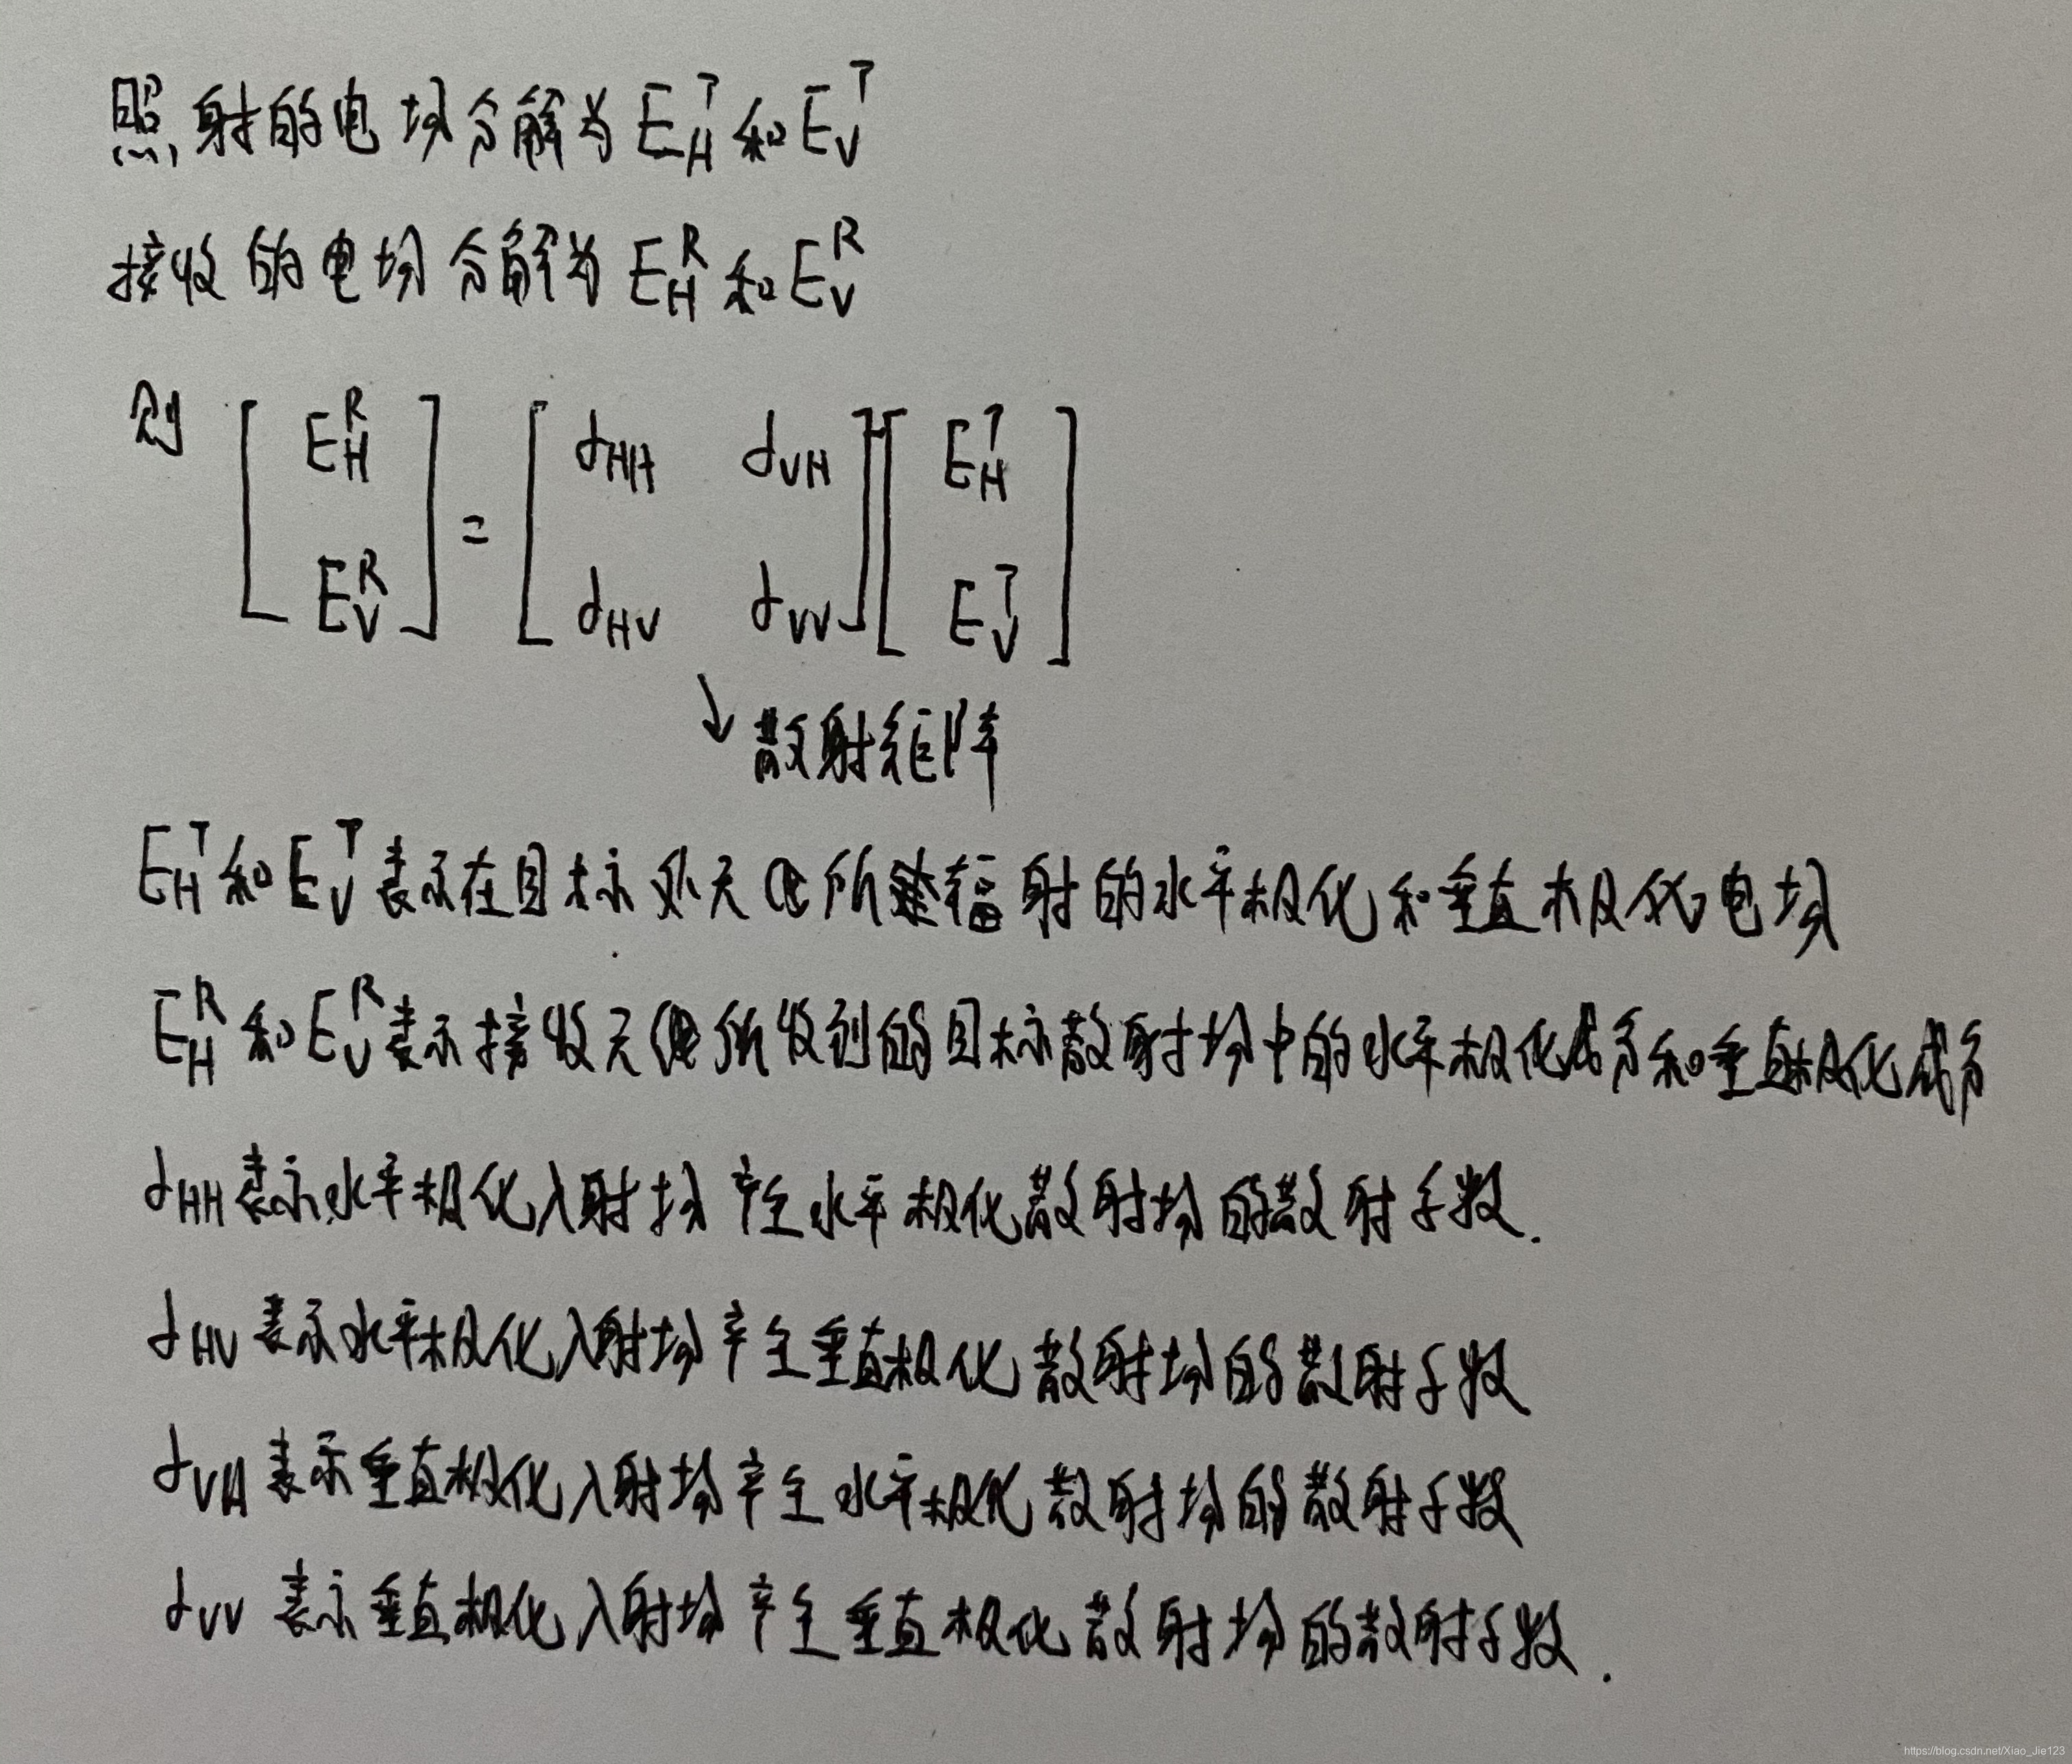 照射的电场分解为 E_H^T 和 E_V^T
接收的电场分解为 E_H^R 和 E_V^R
则 [E_H^R; E_V^R] = [α_HH α_VH; α_HV α_VV][E_H^T; E_V^T]
↓ 散射矩阵
E_H^T 和 E_V^T 表示在目标处天线所辐射的水平极化和垂直极化电场
E_H^R 和 E_V^R 表示接收天线所收到的目标散射场中的水平极化成分和垂直极化成分
α_HH 表示水平极化入射场产生水平极化散射场的散射系数.
α_HV 表示水平极化入射场产生垂直极化散射场的散射系数
α_VH 表示垂直极化入射场产生水平极化散射场的散射系数
α_VV 表示垂直极化入射场产生垂直极化散射场的散射系数.
https://blog.csdn.net/Xiao_Jie123